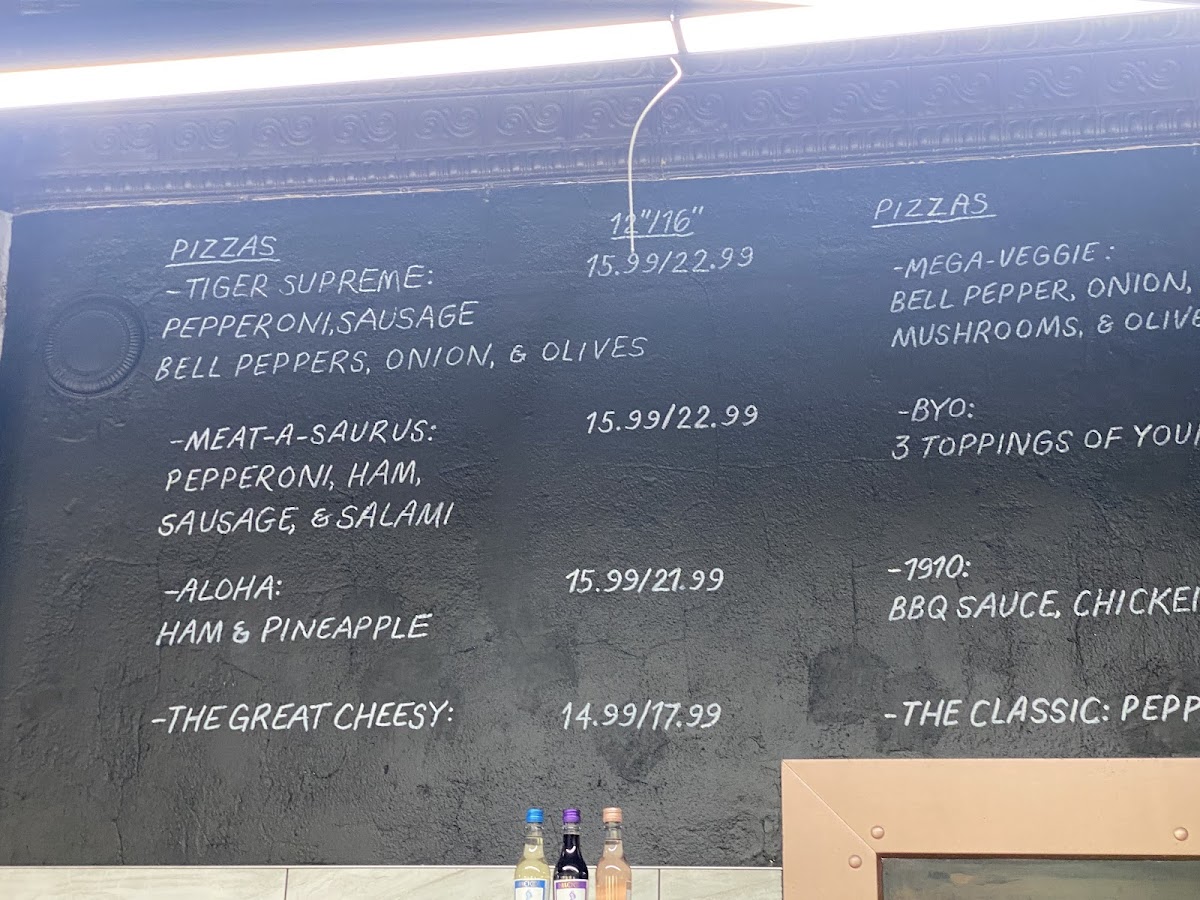 PIZZAS
12"/16"
-TIGER SUPREME:
15.99/22.99
PEPPERONI,SAUSAGE
BELL PEPPERS, ONION, & OLIVES
-MEAT-A-SAURUS:
15.99/22.99
PEPPERONI, HAM,
SAUSAGE, & SALAMI
-ALOHA:
15.99/21.99
HAM & PINEAPPLE
-THE GREAT CHEESY:
14.99/17.99
PIZZAS
-MEGA-VEGGIE:
BELL PEPPER, ONION,
MUSHROOMS, & OLIVE
-BYO:
3 TOPPINGS OF YOU
-1910:
BBQ SAUCE, CHICKE
-THE CLASSIC: PEPP